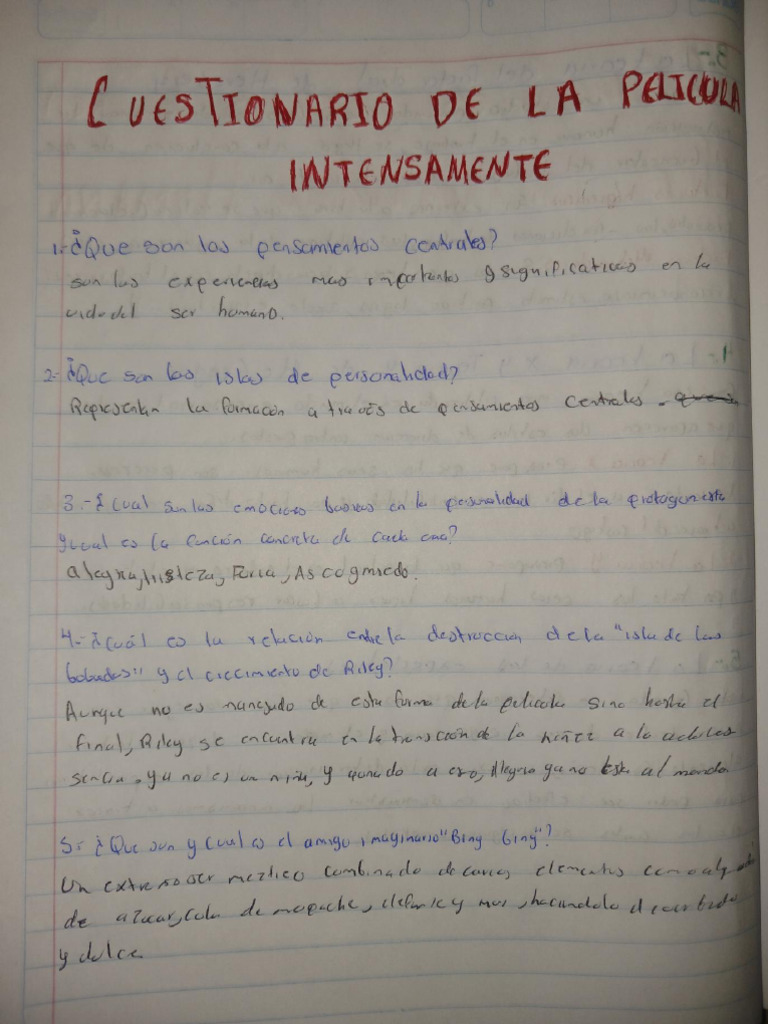 CUESTIONARIO DE LA PELICULA
INTENSAMENTE
1.-¿Que son los pensamientos centrales?
son las experiencias mas importantes y significativas en la
vida del ser humano.
2.-¿Que son las islas de personalidad?
Representan la formación a través de pensamientos centrales.
3.-¿Cual son las emociones basicas en la personalidad de la protagonista
y cual es la función concreta de cada una?
Alegria, tristeza, Furia, Asco y miedo.
4.-¿Cuál es la relación entre la destrucción de la "isla de las
bobadas" y el crecimiento de Riley?
Aunque no es manejado de esta forma de la pelicula sino hasta el
final, Riley se encuentra en la transición de la niñez a la adoles
sencia. ya no es un niña, y aunado a eso, Alegria ya no está al mando
5.-¿Que son y cual es el amigo imaginario "Bing bing"?
Un extraño ser meztico combinado de varios elementos como algodón
de azucar, cola de mapache, elefante y mas, haciendolo
y dulce